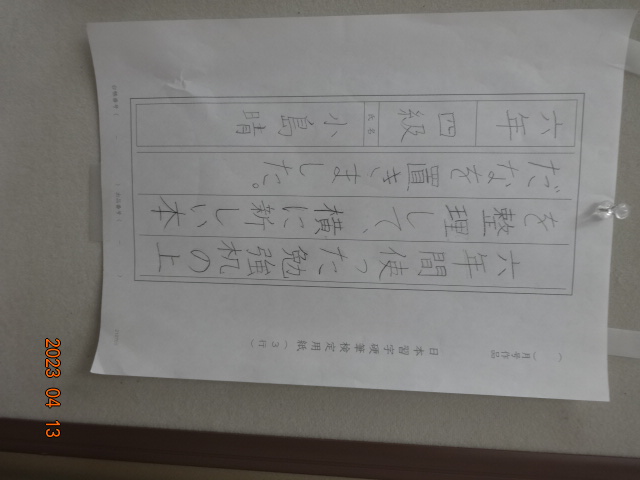 （　）月号作品
日本習字硬筆検定用紙（３行）
六年間使った勉強机の上
を整理して、横に新しい本
だなを置きました。
六年 四級 氏名 小島晴
2023 04 13